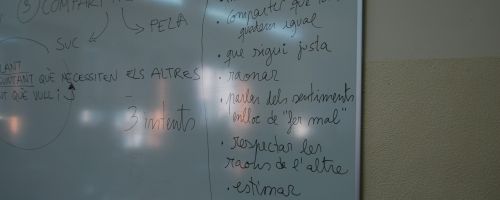 ③ COMPARTI
PELA
SUC
LANT
GUNTANT QUÈ NECESSITEN ELS ALTRES
T QUÈ VULL i J
3 intents
compartir que
quedem igual
• que sigui justa
• raonar
• parlar dels sentiments
enlloc de "fer mal"
• respectar les
raons de l'altre
• estimar